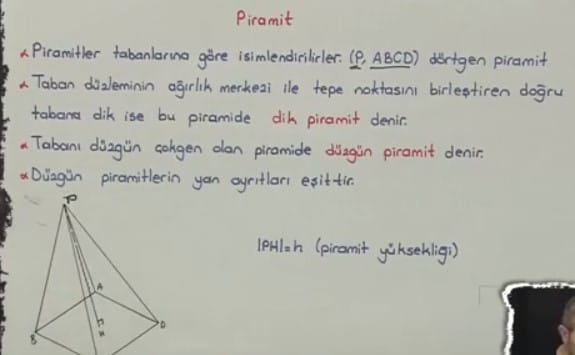 Piramit
Piramitler tabanlarına göre isimlendirilirler. (P, ABCD) dörtgen piramit
Taban düzleminin ağırlık merkezi ile tepe noktasını birleştiren doğru
tabana dik ise bu piramide dik piramit denir.
Tabanı düzgün çokgen olan piramide düzgün piramit denir.
Düzgün piramitlerin yan ayrıtları eşittir.
P
|PH|=h (piramit yüksekliği)
A
B
H
D